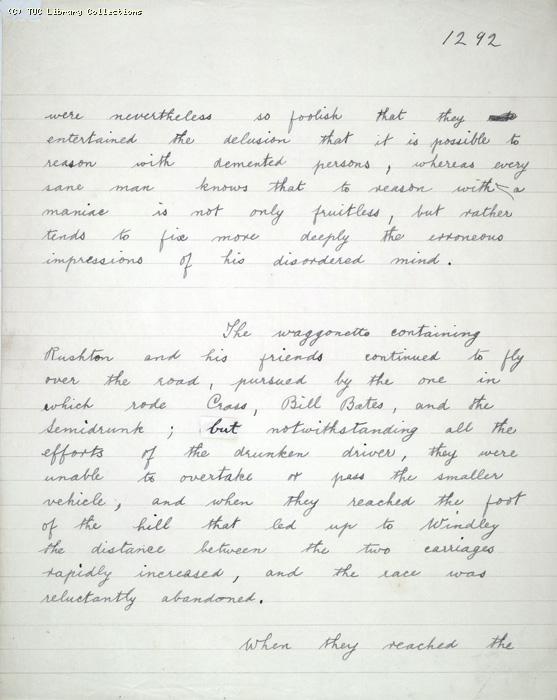 (C) TUC Library Collections
1292
were nevertheless so foolish that they
entertained the delusion that it is possible to
reason with demented persons, whereas every
sane man knows that to reason with a
maniac is not only fruitless, but rather
tends to fix more deeply the erroneous
impressions of his disordered mind.
The waggonette containing
Rushton and his friends continued to fly
over the road, pursued by the one in
which rode Crass, Bill Bates, and the
Semidrunk; but notwithstanding all the
efforts of the drunken driver, they were
unable to overtake or pass the smaller
vehicle, and when they reached the foot
of the hill that led up to Windley
the distance between the two carriages
rapidly increased, and the race was
reluctantly abandoned.
When they reached the